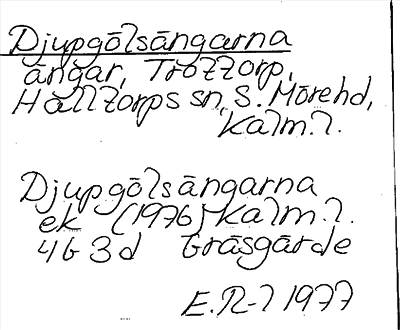 Djupgölsängarna
ängar, Trottorp,
Halltorps sn, S. Mörehd,
Kalm.l.
Djupgölsängarna
ek (1976) Kalm.l.
4G 3d Gräsgärde
E.R-l 1977